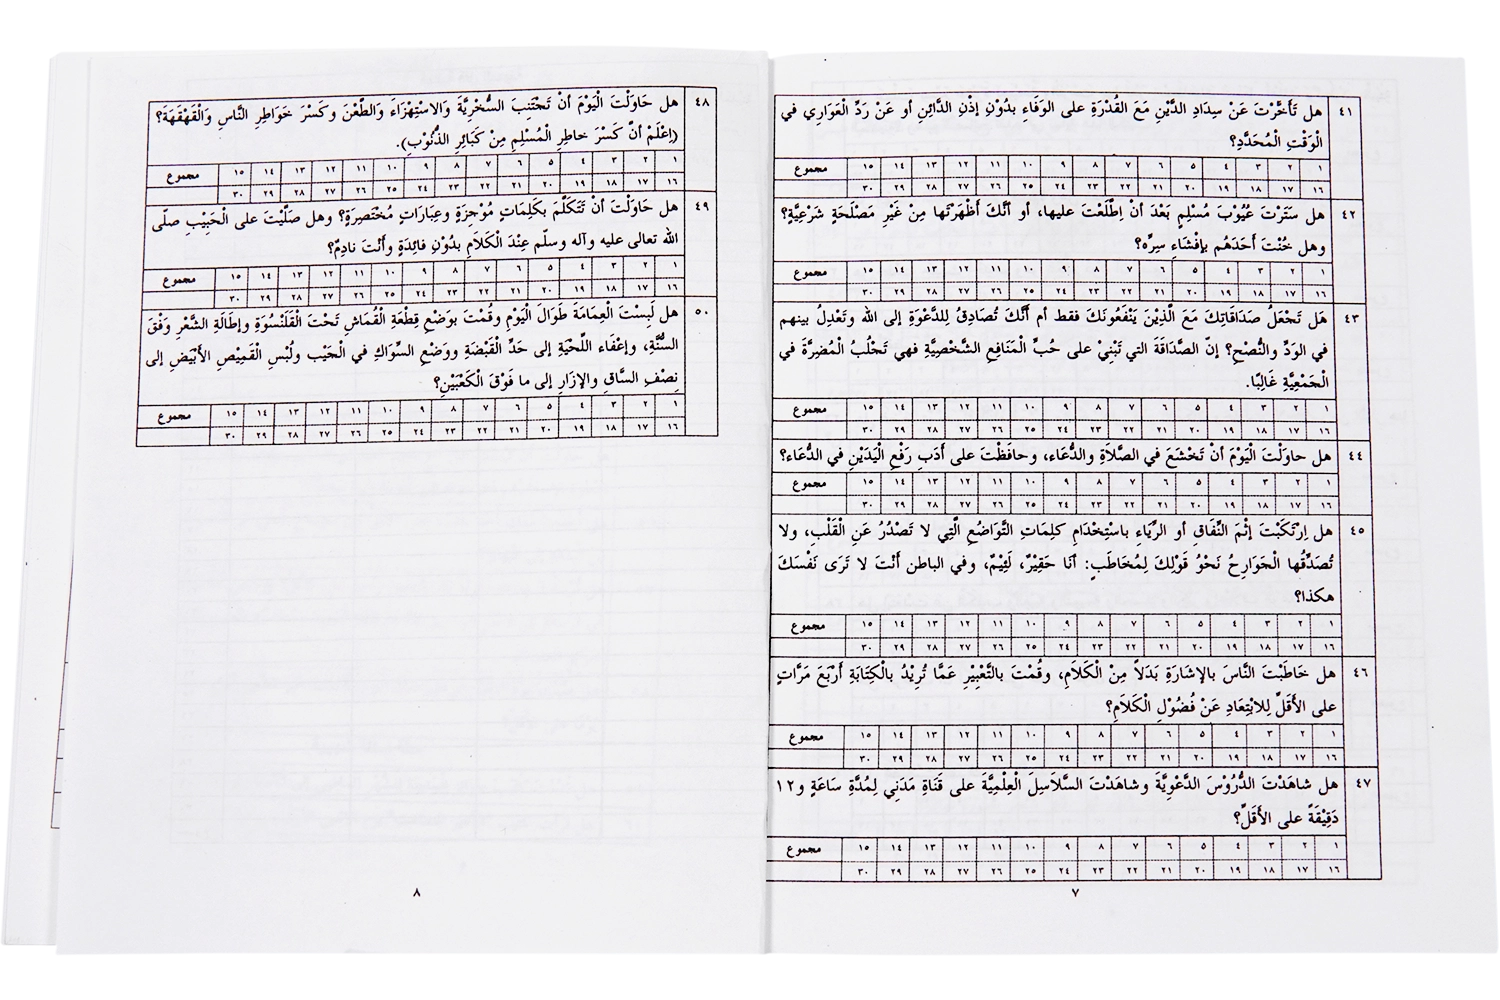 ٤١ هل تَأَخَّرْتَ عَنْ سِدَادِ الدَّيْنِ مَعَ الْقُدْرَةِ على الوَفَاءِ بِدُوْنِ إذْنِ الدَّائِنِ أو عَنْ رَدِّ الْعَوَارِي في
الْوَقْتِ الْمُحَدَّدِ؟
١ ٢ ٣ ٤ ٥ ٦ ٧ ٨ ٩ ١٠ ١١ ١٢ ١٣ ١٤ ١٥ مجموع
١٦ ١٧ ١٨ ١٩ ٢٠ ٢١ ٢٢ ٢٣ ٢٤ ٢٥ ٢٦ ٢٧ ٢٨ ٢٩ ٣٠
٤٢ هل سَتَرْتَ عُيُوْبَ مُسْلِمٍ بَعْدَ أنْ اِطَّلَعْتَ عليها، أو أنَّكَ أَظْهَرْتَها مِنْ غَيْرِ مَصْلَحَةٍ شَرْعِيَّةٍ؟
وهل خُنْتَ أَحَدَهُم بإفْشَاءِ سِرِّه؟
١ ٢ ٣ ٤ ٥ ٦ ٧ ٨ ٩ ١٠ ١١ ١٢ ١٣ ١٤ ١٥ مجموع
١٦ ١٧ ١٨ ١٩ ٢٠ ٢١ ٢٢ ٢٣ ٢٤ ٢٥ ٢٦ ٢٧ ٢٨ ٢٩ ٣٠
٤٣ هَل تَجْعَلُ صَدَاقَاتِكَ مَعَ الَّذِيْنَ يَنْفَعُونَكَ فقط أم أَنَّكَ تُصَادِقُ لِلدَّعْوَةِ إلى الله وتَعْدِلُ بينهم
في الوَدِّ والنُّصْحِ؟ إنّ الصَّدَاقَةَ التي تَبْنِيْ على حُبِّ الْمَنَافِعِ الشَّخْصِيَّةِ فهي تَجْلُبُ الْمَضِرَّةَ في
الْجَمْعِيَّةِ غَالِبًا.
١ ٢ ٣ ٤ ٥ ٦ ٧ ٨ ٩ ١٠ ١١ ١٢ ١٣ ١٤ ١٥ مجموع
١٦ ١٧ ١٨ ١٩ ٢٠ ٢١ ٢٢ ٢٣ ٢٤ ٢٥ ٢٦ ٢٧ ٢٨ ٢٩ ٣٠
٤٤ هل حاوَلْتَ الْيَوْمَ أنْ تَخْشَعَ في الصَّلاَةِ والدُّعَاءِ، وحافَظْتَ على أَدَبِ رَفْعِ الْيَدَيْنِ في الدُّعَاء؟
١ ٢ ٣ ٤ ٥ ٦ ٧ ٨ ٩ ١٠ ١١ ١٢ ١٣ ١٤ ١٥ مجموع
١٦ ١٧ ١٨ ١٩ ٢٠ ٢١ ٢٢ ٢٣ ٢٤ ٢٥ ٢٦ ٢٧ ٢٨ ٢٩ ٣٠
٤٥ هل اِرْتَكَبْتَ إثْمَ النِّفَاقِ أو الرِّيَاءِ باسْتِخْدَامِ كلِمَاتِ التَّوَاضُعِ الَّتِي لا تَصْدُرُ عَنِ الْقَلْبِ، ولا
تُصَدِّقُها الْجَوَارِحُ نَحْوُ قَوْلِكَ لِمُخَاطَبٍ: أنَا حَقِيْرٌ، لَئِيْمٌ، وفي الباطن أَنْتَ لا تَرَى نَفْسَكَ
هكذا؟
١ ٢ ٣ ٤ ٥ ٦ ٧ ٨ ٩ ١٠ ١١ ١٢ ١٣ ١٤ ١٥ مجموع
١٦ ١٧ ١٨ ١٩ ٢٠ ٢١ ٢٢ ٢٣ ٢٤ ٢٥ ٢٦ ٢٧ ٢٨ ٢٩ ٣٠
٤٦ هل خَاطَبْتَ النَّاسَ بالإشَارَةِ بَدَلاً مِنْ الْكَلاَمِ، وقُمْتَ بالتَّعْبِيْرِ عَمَّا تُرِيْدُ بالْكِتَابَةِ أَرْبَعَ مَرَّاتٍ
على الأَقَلِّ لِلابْتِعَادِ عَنْ فُضُوْلِ الْكَلاَمِ؟
١ ٢ ٣ ٤ ٥ ٦ ٧ ٨ ٩ ١٠ ١١ ١٢ ١٣ ١٤ ١٥ مجموع
١٦ ١٧ ١٨ ١٩ ٢٠ ٢١ ٢٢ ٢٣ ٢٤ ٢٥ ٢٦ ٢٧ ٢٨ ٢٩ ٣٠
٤٧ هل شاهَدْتَ الدُّرُوْسَ الدَّعْوِيَّةَ وشاهَدْتَ السَّلاَسِلَ الْعِلْمِيَّةَ على قَنَاةِ مَدَنِي لِمُدَّةِ سَاعَةٍ و١٢
دَقِيْقَةً على الأَقَلِّ؟
١ ٢ ٣ ٤ ٥ ٦ ٧ ٨ ٩ ١٠ ١١ ١٢ ١٣ ١٤ ١٥ مجموع
١٦ ١٧ ١٨ ١٩ ٢٠ ٢١ ٢٢ ٢٣ ٢٤ ٢٥ ٢٦ ٢٧ ٢٨ ٢٩ ٣٠
٧
٤٨ هل حَاوَلْتَ الْيَوْمَ أنْ تَجْتَنِبَ السُّخْرِيَّةَ وَالاسْتِهْزَاءَ وَالطَّعْنَ وكَسْرَ خَوَاطِرِ النَّاسِ وَالْقَهْقَهَةَ؟
(اِعْلَمْ أنَّ كَسْرَ خاطِرِ الْمُسْلِمِ مِنْ كَبَائِرِ الذُّنُوْبِ).
١ ٢ ٣ ٤ ٥ ٦ ٧ ٨ ٩ ١٠ ١١ ١٢ ١٣ ١٤ ١٥ مجموع
١٦ ١٧ ١٨ ١٩ ٢٠ ٢١ ٢٢ ٢٣ ٢٤ ٢٥ ٢٦ ٢٧ ٢٨ ٢٩ ٣٠
٤٩ هل حَاوَلْتَ أنْ تَتَكَلَّمَ بكَلِمَاتٍ مُوْجِزَةٍ وعِبَارَاتٍ مُخْتَصِرَةٍ؟ وهل صَلَّيْتَ على الْحَبِيْبِ صلّى
الله تعالى عليه وآله وسلّم عِنْدَ الْكَلاَمِ بدُوْنِ فائِدَةٍ وأَنْتَ نادِمٌ؟
١ ٢ ٣ ٤ ٥ ٦ ٧ ٨ ٩ ١٠ ١١ ١٢ ١٣ ١٤ ١٥ مجموع
١٦ ١٧ ١٨ ١٩ ٢٠ ٢١ ٢٢ ٢٣ ٢٤ ٢٥ ٢٦ ٢٧ ٢٨ ٢٩ ٣٠
٥٠ هل لَبِسْتَ الْعِمَامَةَ طَوَالَ الْيَوْمِ وقُمْتَ بوَضْعِ قِطْعَةِ الْقُمَاشِ تَحْتَ الْقَلَنْسُوَةِ وإطَالَةِ الشَّعْرِ وَفْقَ
السُّنَّةِ، وإعْفَاء اللِّحْيَةِ إلى حَدِّ الْقَبْضَةِ ووَضْعِ السِّوَاكِ في الْجَيْب ولُبْسِ الْقَمِيْصِ الأَبْيَضِ إلى
نِصْفِ السَّاقِ والإزَارِ إلى ما فَوْقَ الْكَعْبَيْنِ؟
١ ٢ ٣ ٤ ٥ ٦ ٧ ٨ ٩ ١٠ ١١ ١٢ ١٣ ١٤ ١٥ مجموع
١٦ ١٧ ١٨ ١٩ ٢٠ ٢١ ٢٢ ٢٣ ٢٤ ٢٥ ٢٦ ٢٧ ٢٨ ٢٩ ٣٠
٨